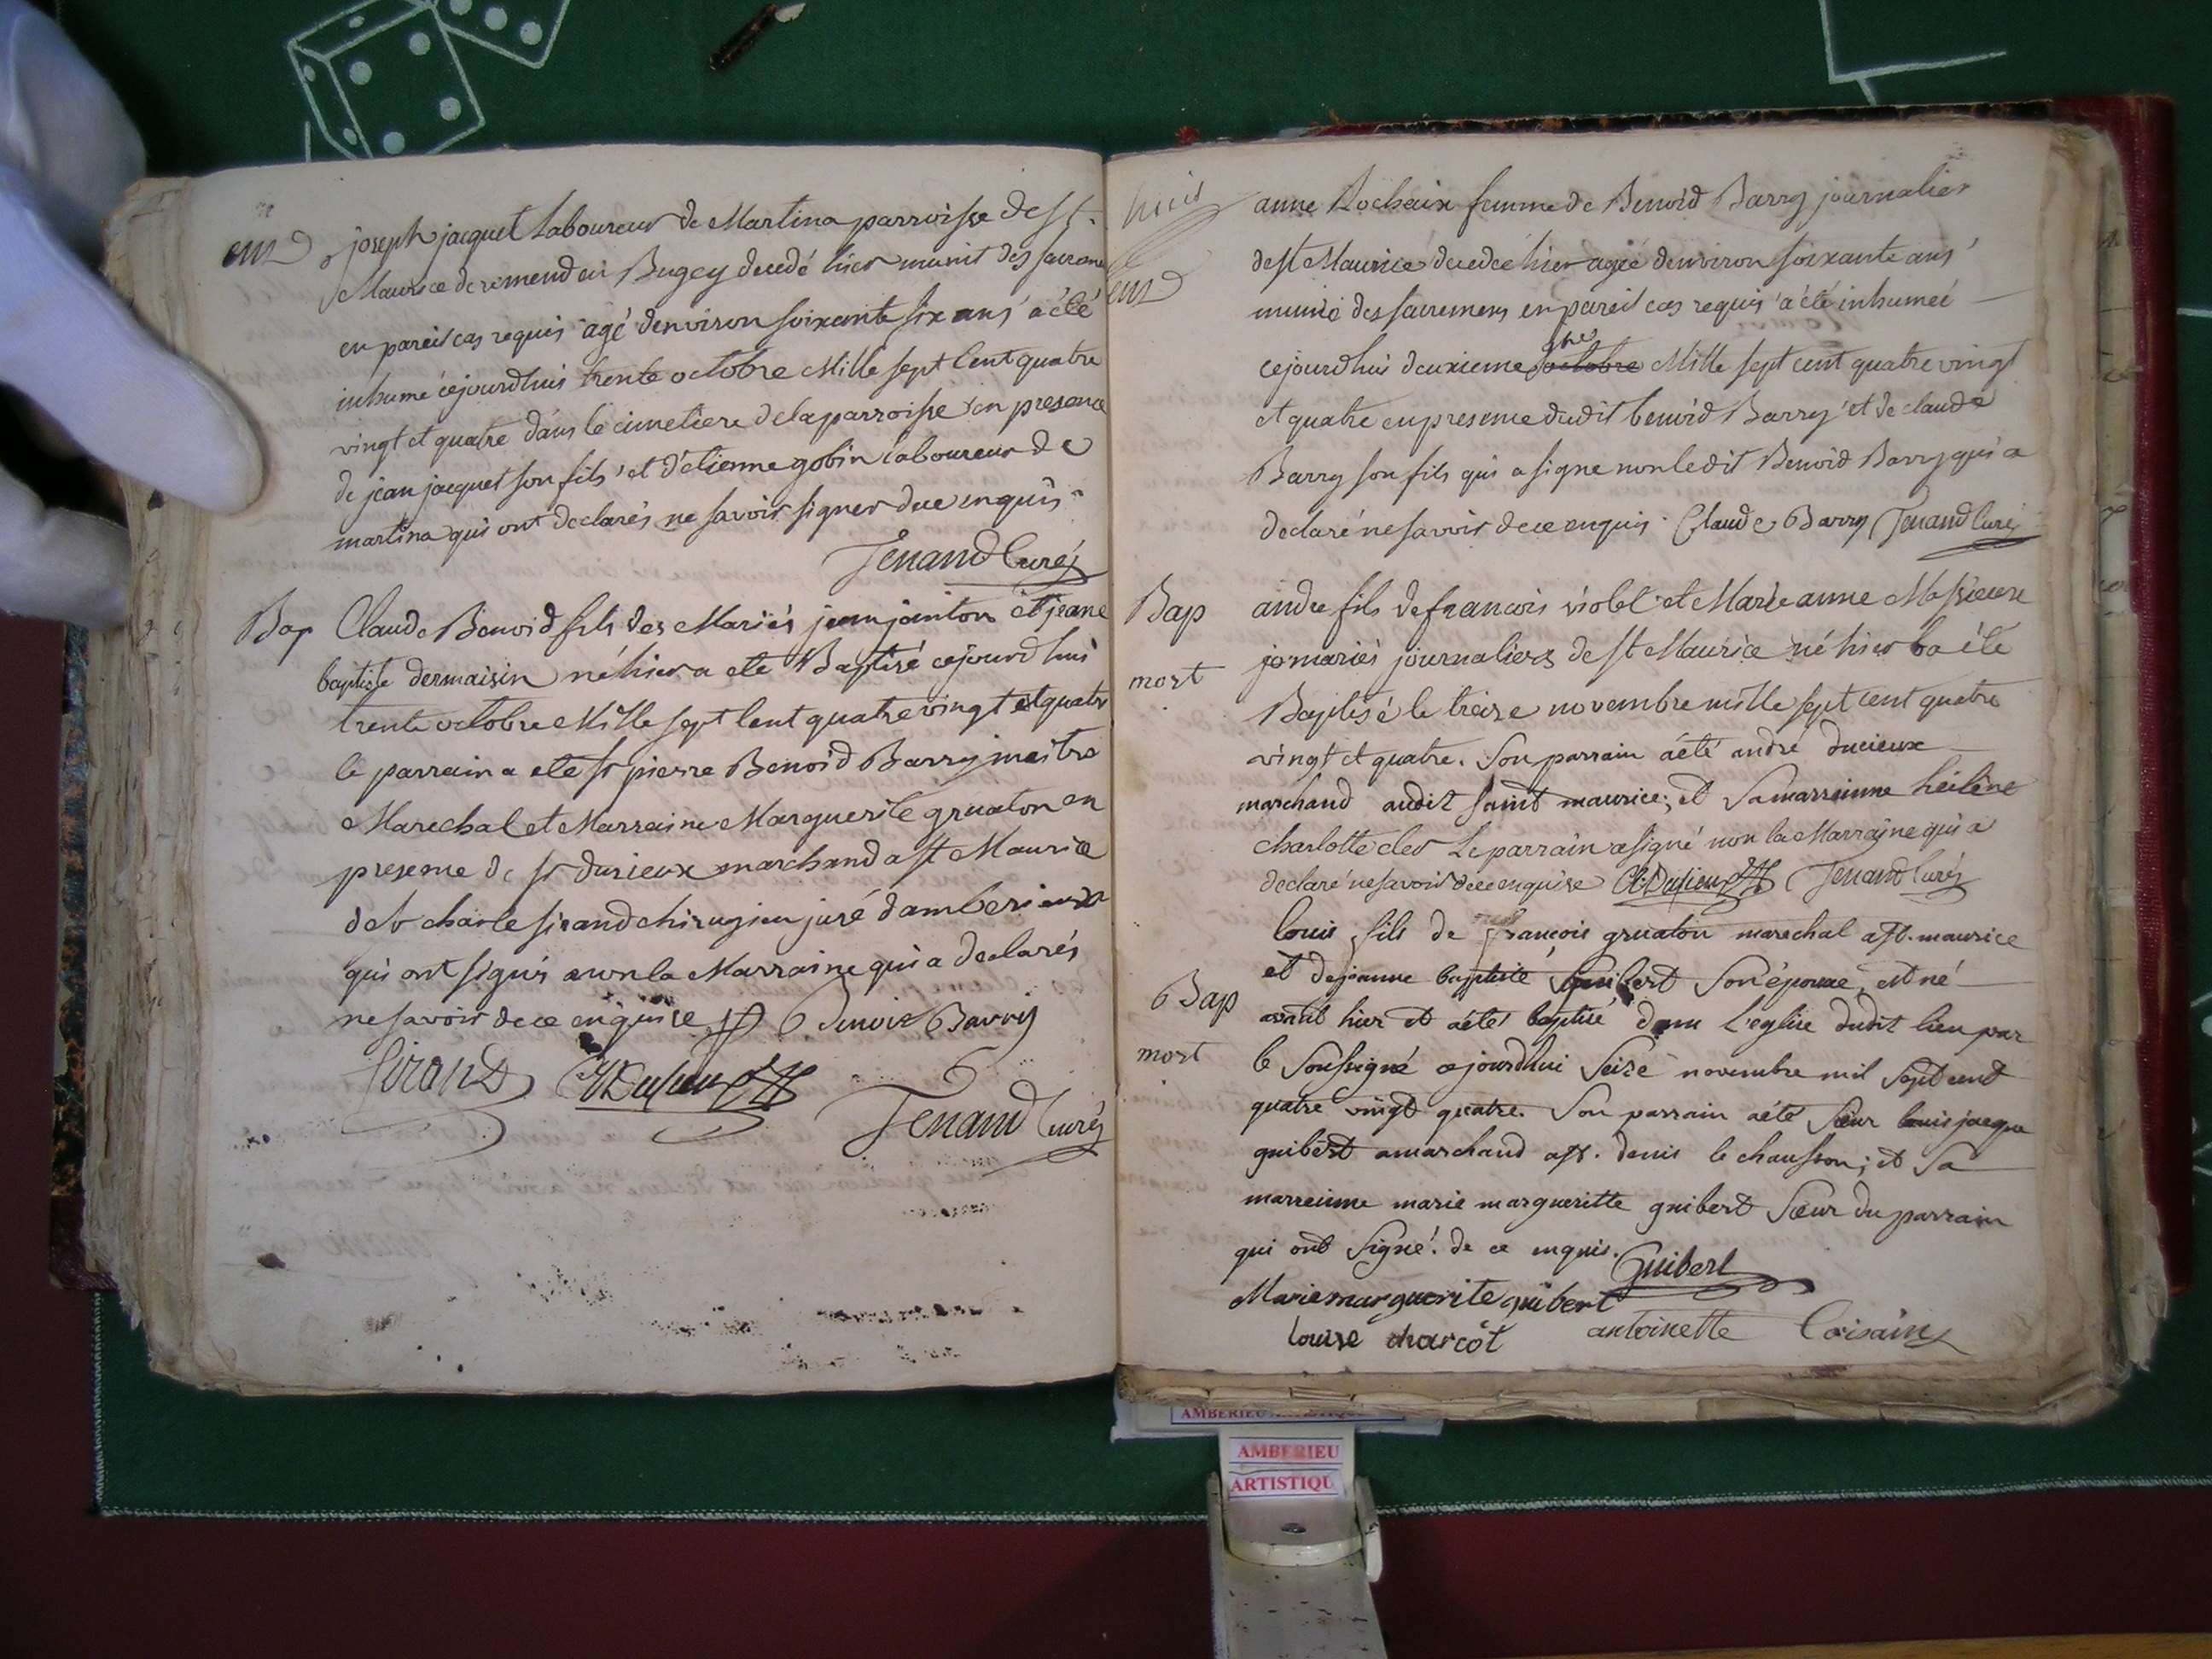 ent
joseph jacquet Laboureur de Martina parroisse de st.
Maurice de remend en Bugey decedé hier munit des sacrem
en pareil cas requis agé denviron soixante six ans a été
inhumé cejourdhuis trente octobre Mille sept Cent quatre
vingt et quatre dans le cimetiere de la parroisse en presence
de jean jacquet son fils et d'etienne gobin laboureur de
martina qui ont declarés ne savoir signer de ce enquis.
Tenand Curé
Bap
Claude Benoid fils des Mariés jean joniton et jeane
baptiste dermaisin né hier a eté Baptisé cejourdhui
trente octobre Mille sept Cent quatre vingt et quatre
le parrain a eté sr pierre Benoid Barry maitre
Marechal et Marraine Marguerite gruaton en
presence de sr durieux marchand a st Maurice
de sr charle sirand chirugien juré damberieux
qui ont signés non la Marraine qui a declarés
ne savoir de ce enquise Benoid Barry
Sirand Durieux
Tenand Curé
ent
anne Rochaix femme de Benoid Barry journalier
de st Maurice decedeé hier ageé denviron soixante ans
munie des sacremens en pareil cas requis a été inhumeé
cejourdhui deuxieme octobre 9bre Mille sept cent quatre vingt
et quatre en presence dudit benoid Barry et de claude
Barry son fils qui a signe non ledit Benoid Barry qui a
declaré ne savoir de ce enquis. Claude Barry Tenand Curé
Bap
mort
andre fils de francois violet et Marie anne Messieux
mariés journaliers de st Maurice né hier a été
Baptisé le treize novembre mille sept cent quatre
vingt et quatre. Son parrain a été andré ducieux
marchand audit saint maurice; et Sa marreinne heilêne
charlotte cler Le parrain a signé non la Marrayne qui a
declaré ne savoir de ce enquise Durieux Tenand Curé
Bap
mort
louis fils de françois gruaton marechal a st. maurice
et de jeanne baptiste guibert Son épouse, est né
avant hier et a été baptisé dans L'eglise dudit lieu par
le Soussigné cejourdhui Seize novembre mil Sept cent
quatre vingt quatre. Son parrain a été Sieur louis jacque
guibert marchand a st. denis le chausson; et Sa
marreinne marie margueritte guibert Sœur du parrain
qui ont Signé. de ce enquis.
Guibert
Marie marguerite guibert
louise charcôt antoinette Coisain
AMBERIEU
ARTISTIQU